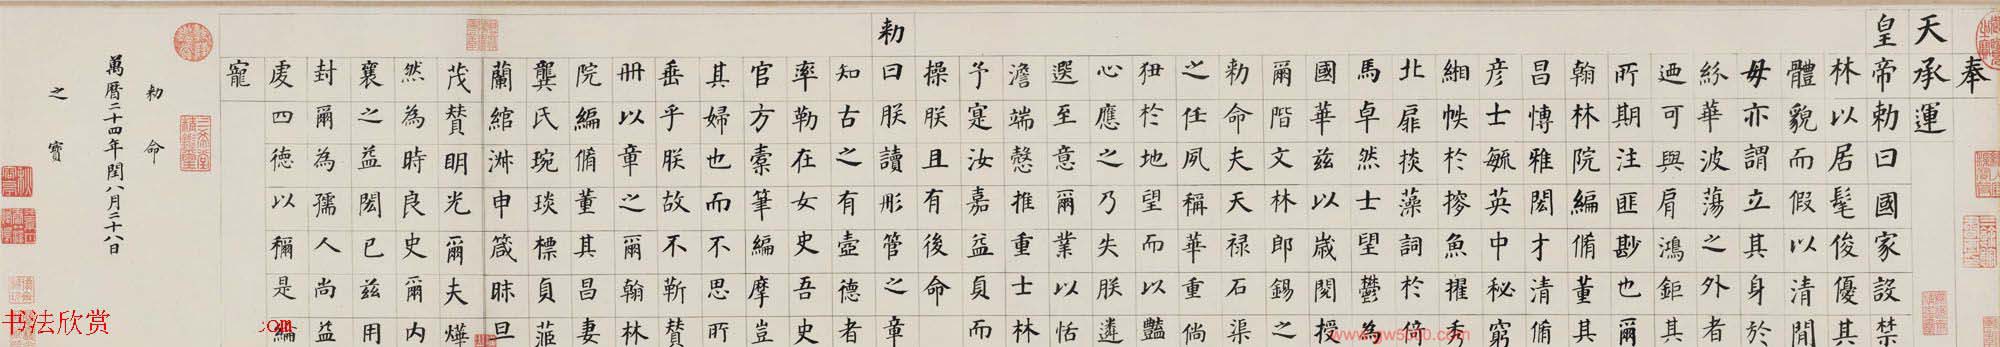 奉
天承運
皇帝勅曰國家設禁
林以居髦俊優其
體貌而假以清閒
毋亦謂立其身於
紛華波蕩之外者
迺可與肩鴻鉅其
所期注匪尠也爾
翰林院編脩董其
昌博雅閎才清脩
彥士毓英中秘窮
緗帙於撈魚擢秀
北扉掞藻詞於倚
馬卓然士望鬱為
國華茲以歲閱授
爾階文林郎錫之
勅命夫天祿石渠
之任夙稱華重倘
狃於地望而以豔
心應之乃失朕遴
選至意爾業以恬
澹端愨推重士林
予寔汝嘉益貞而
操朕且有後命
勅曰朕讀彤管之章
知古之有壼德者
率勒在女史吾史
官方橐筆編摩豈
其婦也而不思所
垂乎朕故不靳贊
冊以章之爾翰林
院編脩董其昌妻
龔氏琬琰標貞蘅
蘭綰淋申箴昧旦
茂贊明光爾夫燁
然為時良史爾內
襄之益閎已茲用
封爾為孺人尚益
處四德以稱是綸
寵
勅命
萬曆二十四年閏八月二十八日
之寶
书法欣赏
.com
www.gw5000.com